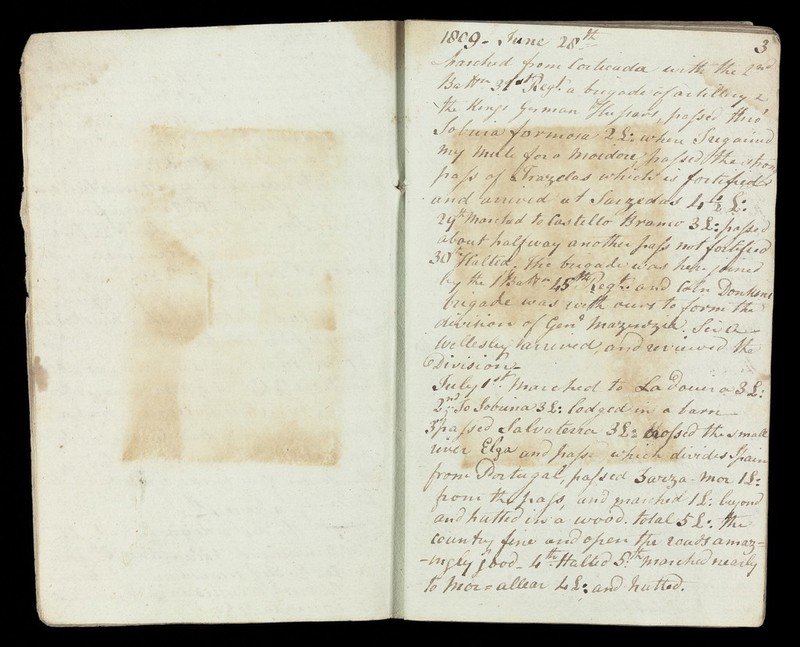 1809 - June 28th 3
Marched from Corticada with the 2nd
Battn 31st Regt. a brigade of artillery &
the Kings German Hussars, passed thro'
Sobreia formosa 2 L: when I regained
my mule for a moidore, passed the strong
pass of Trazedas which is fortified
and arrived at Sarzedas 4½ L:
29th Marched to Castello Branco 3 L: passed
about halfway another pass not fortified
30th Halted, the brigade was here joined
by the 1st Battn 45th Regt. and Coln Donkins
brigade was with ours to form the
division of Genl Mackenzie. Sir A-
Wellesley arrived, and reviewed the
Division-
July 1st Marched to Ladouera 3 L:
2nd To Sobrina 3 L: lodged in a barn
3d passed Salvaterra 3 L: crossed the small
river Elga and pass which divides Spain
from Portugal, passed Zarza-Mor 1 L:
from the pass, and marched 1 L: beyond
and hutted in a wood. total 5 L: the
country fine and open the roads amaz=
-ingly good - 4th Halted 5th Marched nearly
to Mor=allear 4 L: and hutted.